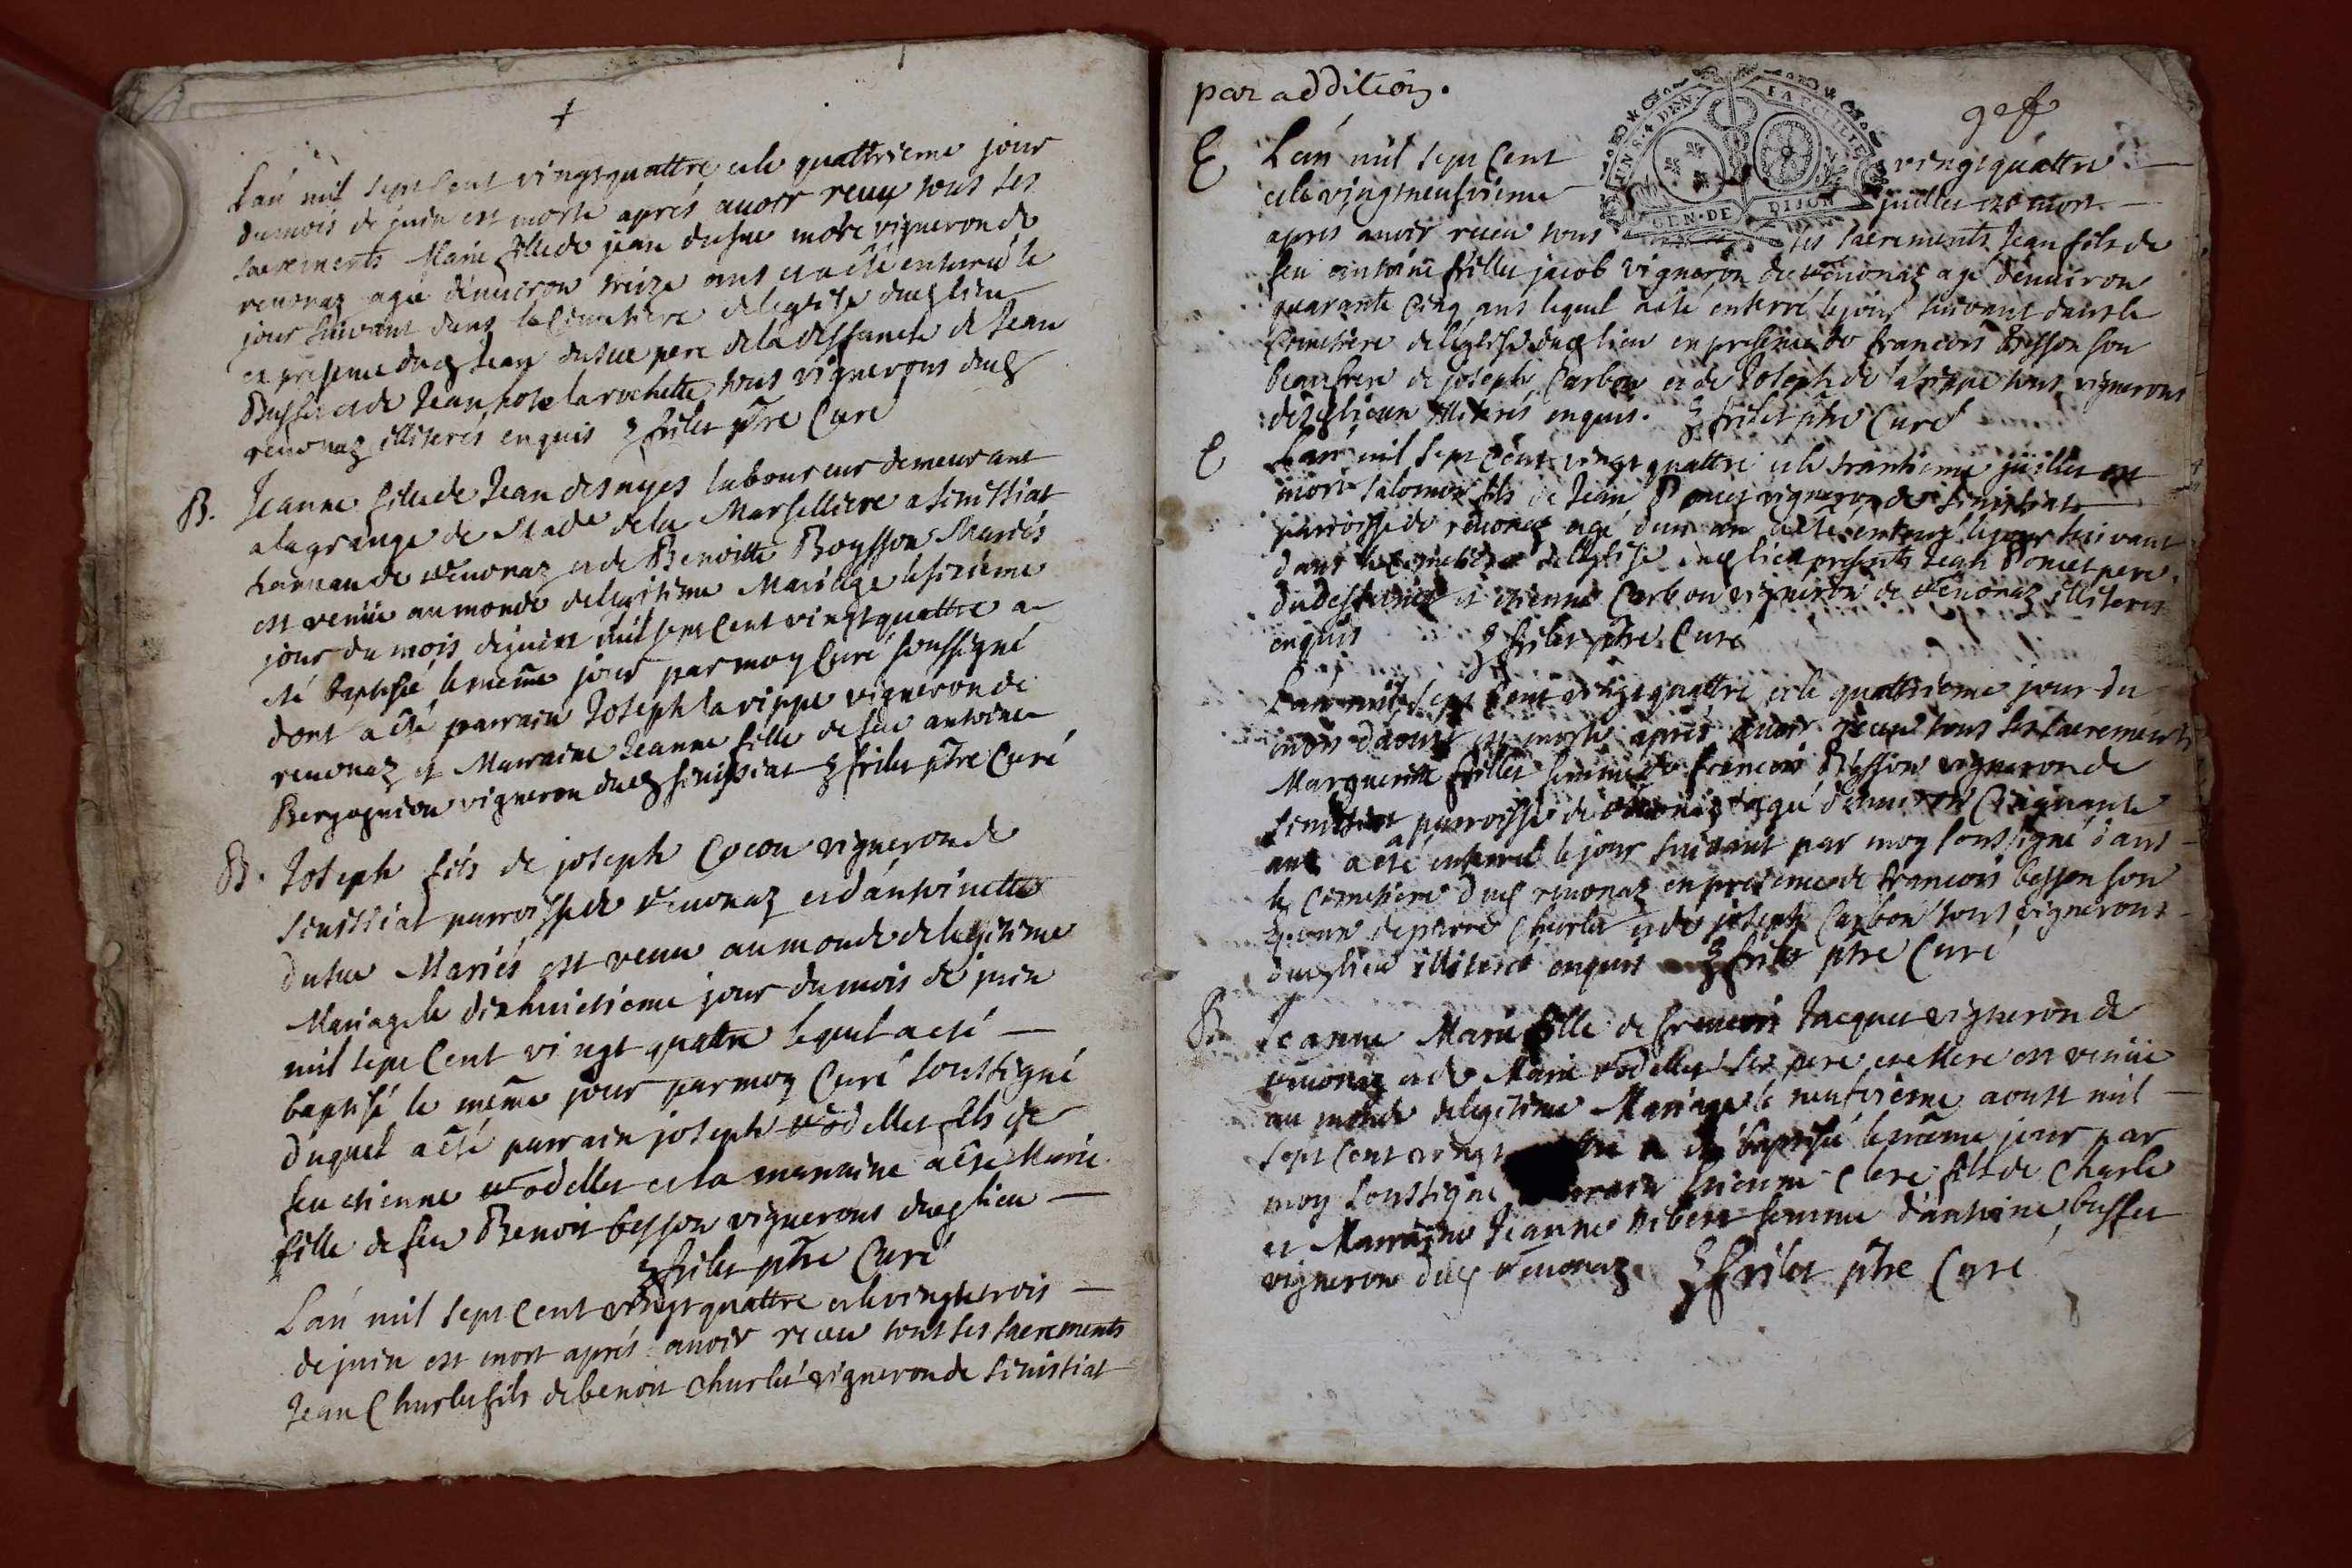 L'an mil sept cent vingt quattre et le quattrieme jour
du mois de juin est morte aprés auoir reçu tous ses
sacrements Marie fille de jean dusue vigneron de
reuonaz agée d'enuiron treize ans et a esté enterré le
jour suivant dans le cimetiere de l'eglise dud lieu
en presence dud Jean dusue pere de la deffuncte de Jean
Buffet et de Jean larochette tous vignerons dud
reuonaz illiterés enquis frilet ptre Curé
B. Jeanne fille de Jean desuyes laboureur demeurant
a la grange de de la Marselliere a Sinissiat
de reuonaz et de Benoitte Boysson Mariés
est venüe au monde de legitime Mariage le sixième
jour du mois de juin mil sept Cent vingt quattre a
été baptisé le même jour par moy Curé soussigné
dont a été parrain Joseph larippe vigneron de
reuonaz et Marraine Jeanne fille de feu antoine
Bergognion vigneron dud sinissiat frilet ptre Curé
B. Joseph fils de joseph Cocon vigneron de
sinissiat parroisse de reuonaz et d'antoinette
dusue Mariés est venu au monde de legitime
Mariage le dixhuictieme jour du mois de juin
mil sept Cent vingt quattre lequel a esté
baptisé le même jour par moy Curé soussigné
duquel a esté parrain joseph vodellet fils de
feu etienne vodellet et la marraine a esté Marie
fille de feu Benoit besson vignerons dud lieu
frilet ptre Curé
L'an mil sept cent vingt quattre et le vingt trois
de juin est mort aprés auoir reçeu tous ses sacrements
Jean Charlet fils de benoit Charlet vigneron de Sinissiat
par addition.
E L'an mil sept Cent vingt quattre
et le vingtneufvieme juillet est mort
apres auoir reçeu tous ses sacrements Jean fils de
feu antoine frillet jacob vigneron de reuonaz agé d'enuiron
quarante cinq ans lequel a esté enterré le jour suivant dans le
Cimetiere de l'eglise dud lieu en presence de francois besson son
beaufrere de joseph Carbon et de Joseph de larippe tous vignerons
illiterés enquis. frilet ptre Curé
E L'an mil sept Cent vingt quattre et le trantieme juillet est
mort salomon fils de Jean Poncet vigneron de sinissiat
parroisse de reuonaz agé d'un an a esté enterré le jour suivant
dans le cimetiere de l'eglise dud lieu presents Jean Poncet pere
du deffunct et etienne Carbon vigneron de reuonaz illiterés
enquis frilet ptre Curé
L'an mil sept Cent vingt quattre et le quattrieme jour du
mois d'aoust est morte aprés auoir reçeu tous ses sacrements
Marguerite frillet femme de francois Besson vigneron de
sinissiat parroisse de reuonaz agée d'enuiron Cinquante
ans a esté enterré le jour suivant par moy soussigné dans
le Cimetiere dud reuonaz en presence de francois besson son
de pierre Charlet et de joseph Carbon tous vignerons
dud lieu illiterés enquis frilet ptre Curé
B. Jeanne Marie fille de francois Jacquet vigneron de
reuonaz et de Marie vodellet ses pere et Mere est venüe
au monde de legitime Mariage le neufvieme aoust mil
sept Cent vingt a esté baptisé le même jour par
moy soussigné etienne Clere fils de Charle
et Marraine Jeanne nibert femme d'antoine buffet
vigneron dud reuonaz frilet ptre Curé